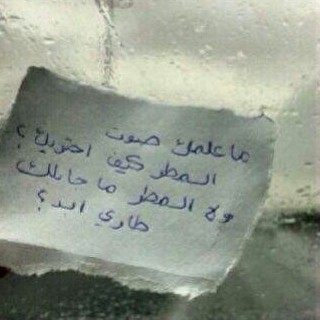 ما علمك صوت
المطر كيف احتريك؟
ولا المطر ما جابلك
طاري ابد؟